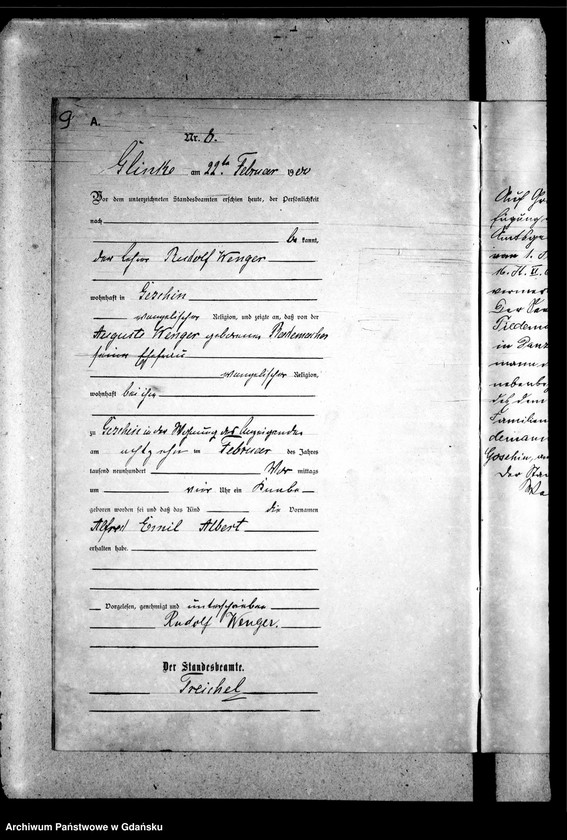 9 A.
Nr. 6.
Glinke am 22ten Februar 1900
Vor dem unterzeichneten Standesbeamten erschien heute, der Persönlichkeit
nach
be kannt,
der Rudolf Wenger
wohnhaft in Goschin
evangelischer Religion, und zeigte an, daß von der
Auguste Wenger geborenen
seiner Ehefrau
evangelischer Religion,
wohnhaft bei ihm
zu Goschin in der Wohnung des Anzeigenden
am achtzehn ten Februar des Jahres
tausend neunhundert Vor mittags
um vier Uhr ein Knabe
geboren worden sei und daß das Kind die Vornamen
Alfred Emil Albert
erhalten habe.
Vorgelesen, genehmigt und unterschrieben
Rudolf Wenger.
Der Standesbeamte.
Treichel
Auf
in Danz
nebenbe
Familien
demann
Goschin,
Der Sta
Archiwum Państwowe w Gdańsku